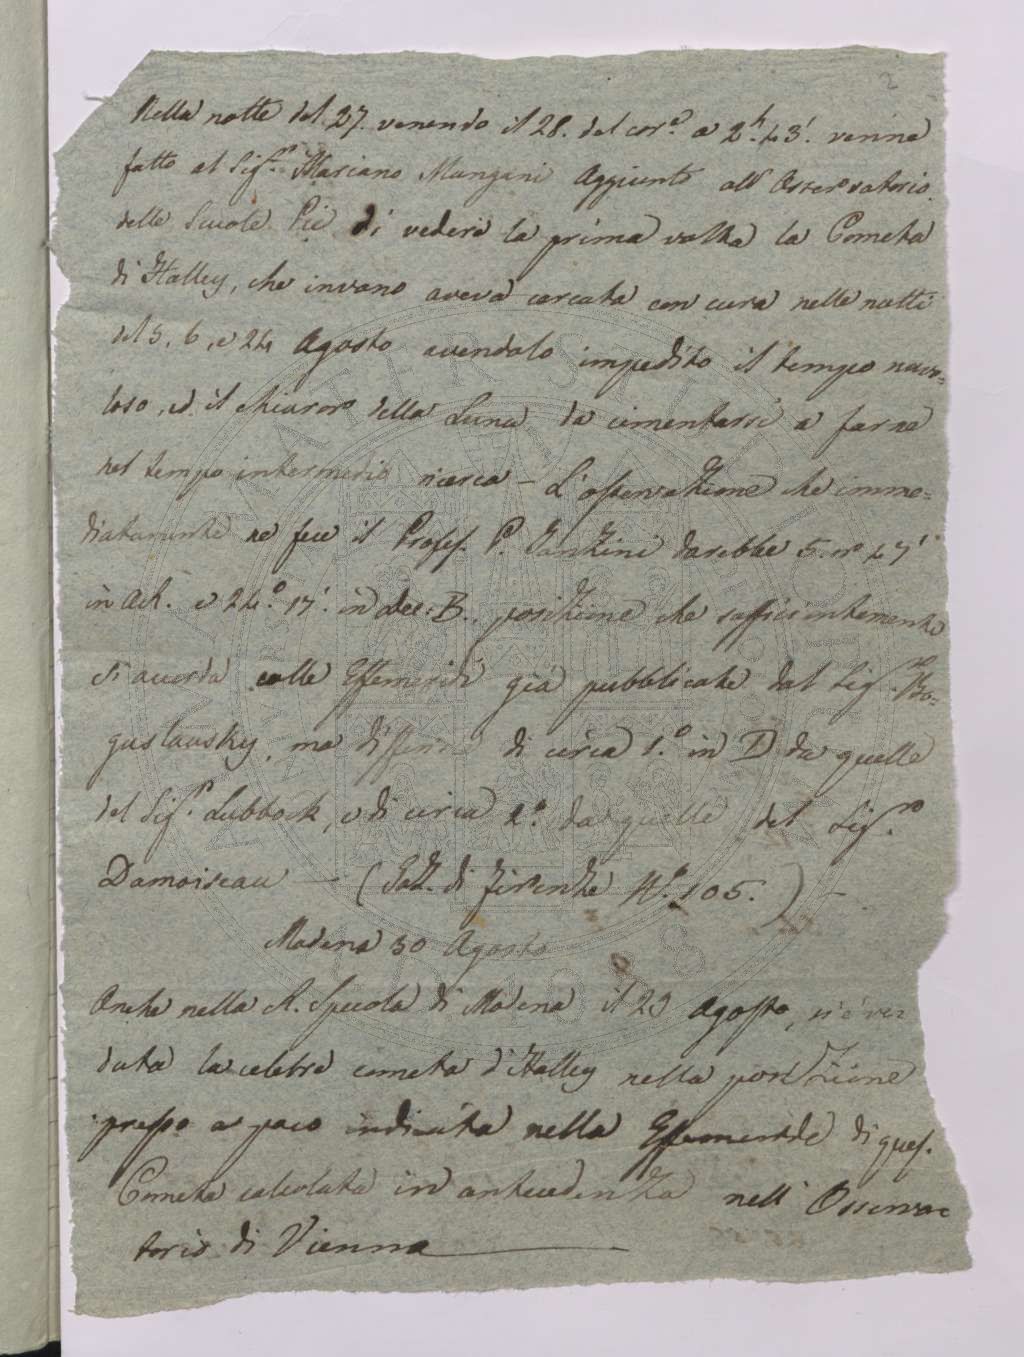 2
Nella notte del 27. venendo il 28. del cor.e a 2.h 43'. venne
fatto al Sig.r Mariano Mangani Aggiunto all' Osservatorio
delle Scuole Pie di vedere la prima volta la Cometa
di Halley, che invano aveva cercata con cura nelle notti
del 5, 6, e 24 Agosto avendolo impedito il tempo nuvo=
loso, ed il chiaror della Luna da cimentarsi a farne
nel tempo intermedio ricerca – L'osservazione che imme=
diatamente ne fece il Profes. P. darebbe 5.h 47'
in AR. e 24.° 17'. in dec. B., posizione che sufficientemente
si accorda colle Effemeridi già pubblicate dal Sig.r Bo=
guslawsky, ma di circa 1.° in D da quelle
del Sig.r Lubbock, e di circa 2.° da quelle del Sig.r
Damoiseau — (Gaz. di Firenze N.° 105.) –
Modena 30 Agosto
Anche nella R. Specola di Modena il 29 Agosto, si è ve=
duta la celebre cometa d'Halley nella posizione
presso a poco indicata nella Effemeride di ques.
Cometa calcolata in antecedenza nell' Osserva=
torio di Vienna